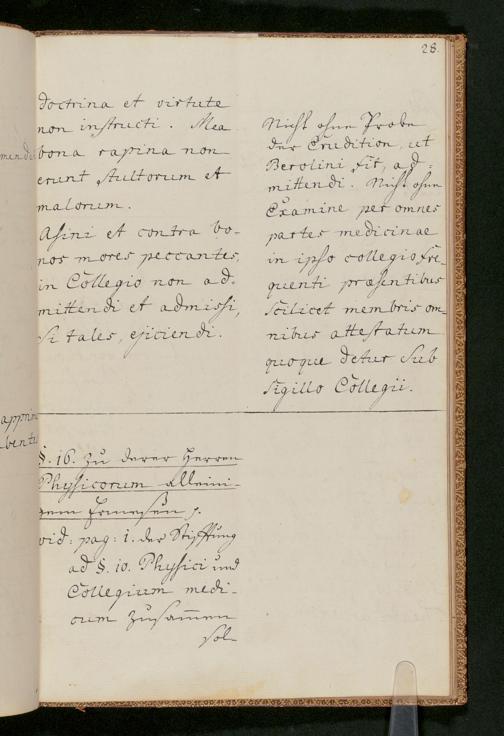 28.
doctrina et virtute
non instructi. Mea
bona rapina non
erunt stultorum et
malorum.
Asini et contra bo-
nos mores peccantes,
in Collegio non ad-
mittendi et admissi,
si tales, ejiciendi.
Nicht ohne Probe
der Erudition, ut
Berolini fit, ad-
mittendi. Nicht ohne
Examine per omnes
partes medicinae
in ipso collegio, fre
quenti praesentibus
scilicet membris om-
nibus attestatum
quoque detur sub
sigillo Collegii.
§. 16. zu derer Herren
Physicorum alleini-
gem Ermeßen /.
vid: pag: 1. der Stifftung
ad §. 10. Physici und
Collegium medi-
cum zusammen
sol-